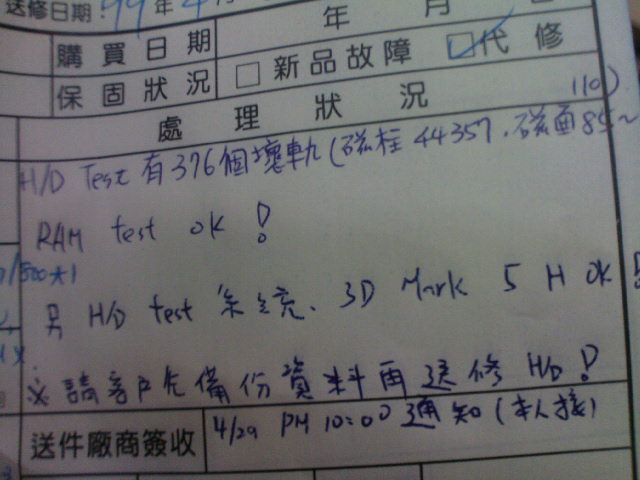 送修日期:99年4月
年 月
購買日期
□新品故障 ☑代修
保固狀況
處理狀況
H/D Test 有376個壞軌(磁柱 44357.磁面85~110)
RAM test ok!
/500*1
另 H/D test 系統、3D Mark 5 H OK!
※請客戶先備份資料再送修 H/D!
送件廠商簽收
4/29 PM 10:00 通知(本人接)